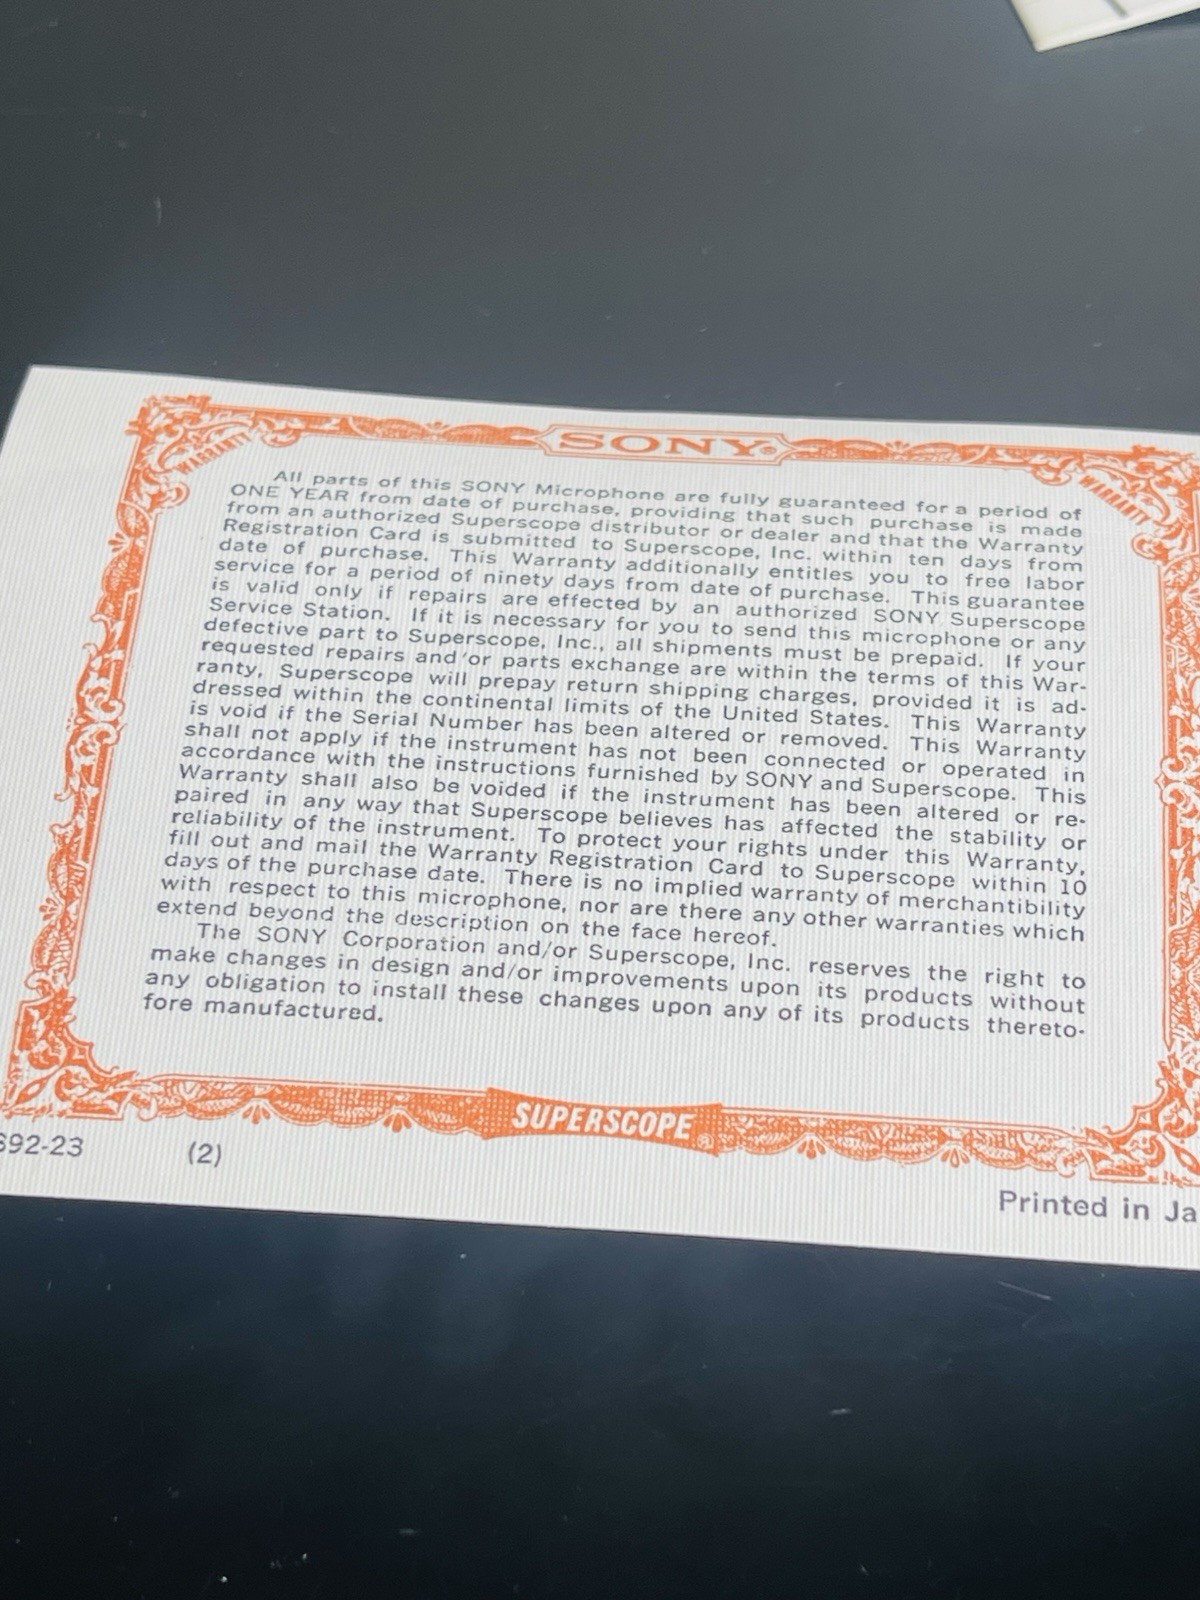 SONY®
WARRANTY
WARRANTY
All parts of this SONY Microphone are fully guaranteed for a period of
ONE YEAR from date of purchase, providing that such purchase is made
from an authorized Superscope distributor or dealer and that the Warranty
Registration Card is submitted to Superscope, Inc. within ten days from
date of purchase. This Warranty additionally entitles you to free labor
service for a period of ninety days from date of purchase. This guarantee
is valid only if repairs are effected by an authorized SONY Superscope
Service Station. If it is necessary for you to send this microphone or any
defective part to Superscope, Inc., all shipments must be prepaid. If your
requested repairs and/or parts exchange are within the terms of this War-
ranty, Superscope will prepay return shipping charges, provided it is ad-
dressed within the continental limits of the United States. This Warranty
is void if the Serial Number has been altered or removed. This Warranty
shall not apply if the instrument has not been connected or operated in
accordance with the instructions furnished by SONY and Superscope. This
Warranty shall also be voided if the instrument has been altered or re-
paired in any way that Superscope believes has affected the stability or
reliability of the instrument. To protect your rights under this Warranty,
fill out and mail the Warranty Registration Card to Superscope within 10
days of the purchase date. There is no implied warranty of merchantibility
with respect to this microphone, nor are there any other warranties which
extend beyond the description on the face hereof.
The SONY Corporation and/or Superscope, Inc. reserves the right to
make changes in design and/or improvements upon its products without
any obligation to install these changes upon any of its products thereto-
fore manufactured.
SUPERSCOPE®
692-23 (2)
Printed in Ja